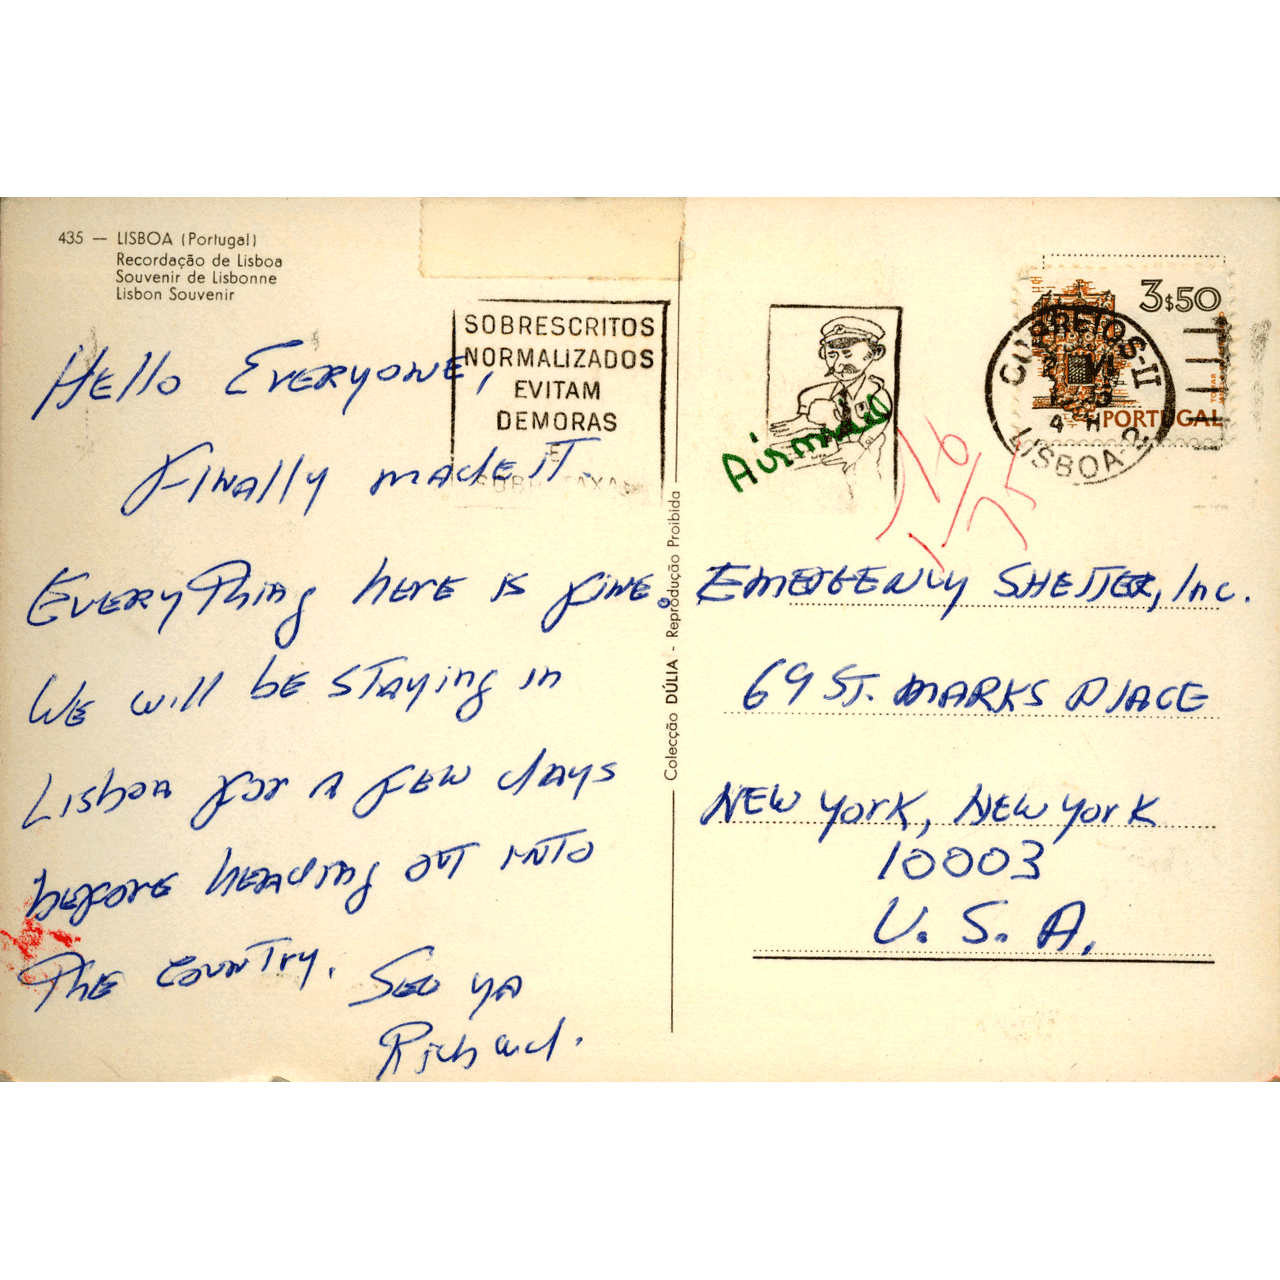 435 — LISBOA (Portugal)
Recordação de Lisboa
Souvenir de Lisbonne
Lisbon Souvenir
Hello Everyone,
Finally made it.
Everything here is fine.
We will be staying in
Lisboa for a few days
before heading out into
the country. See ya
Richard.
SOBRESCRITOS
NORMALIZADOS
EVITAM
DEMORAS
E
SOBRETAXAS
Colecção DÚLIA - Reprodução Proibida
Airmail
3$50
PORTUGAL
CORREIOS-II
4
LISBOA-2
Emergency Shelter, Inc.
69 St. Marks Place
New York, New York
10003
U.S.A.